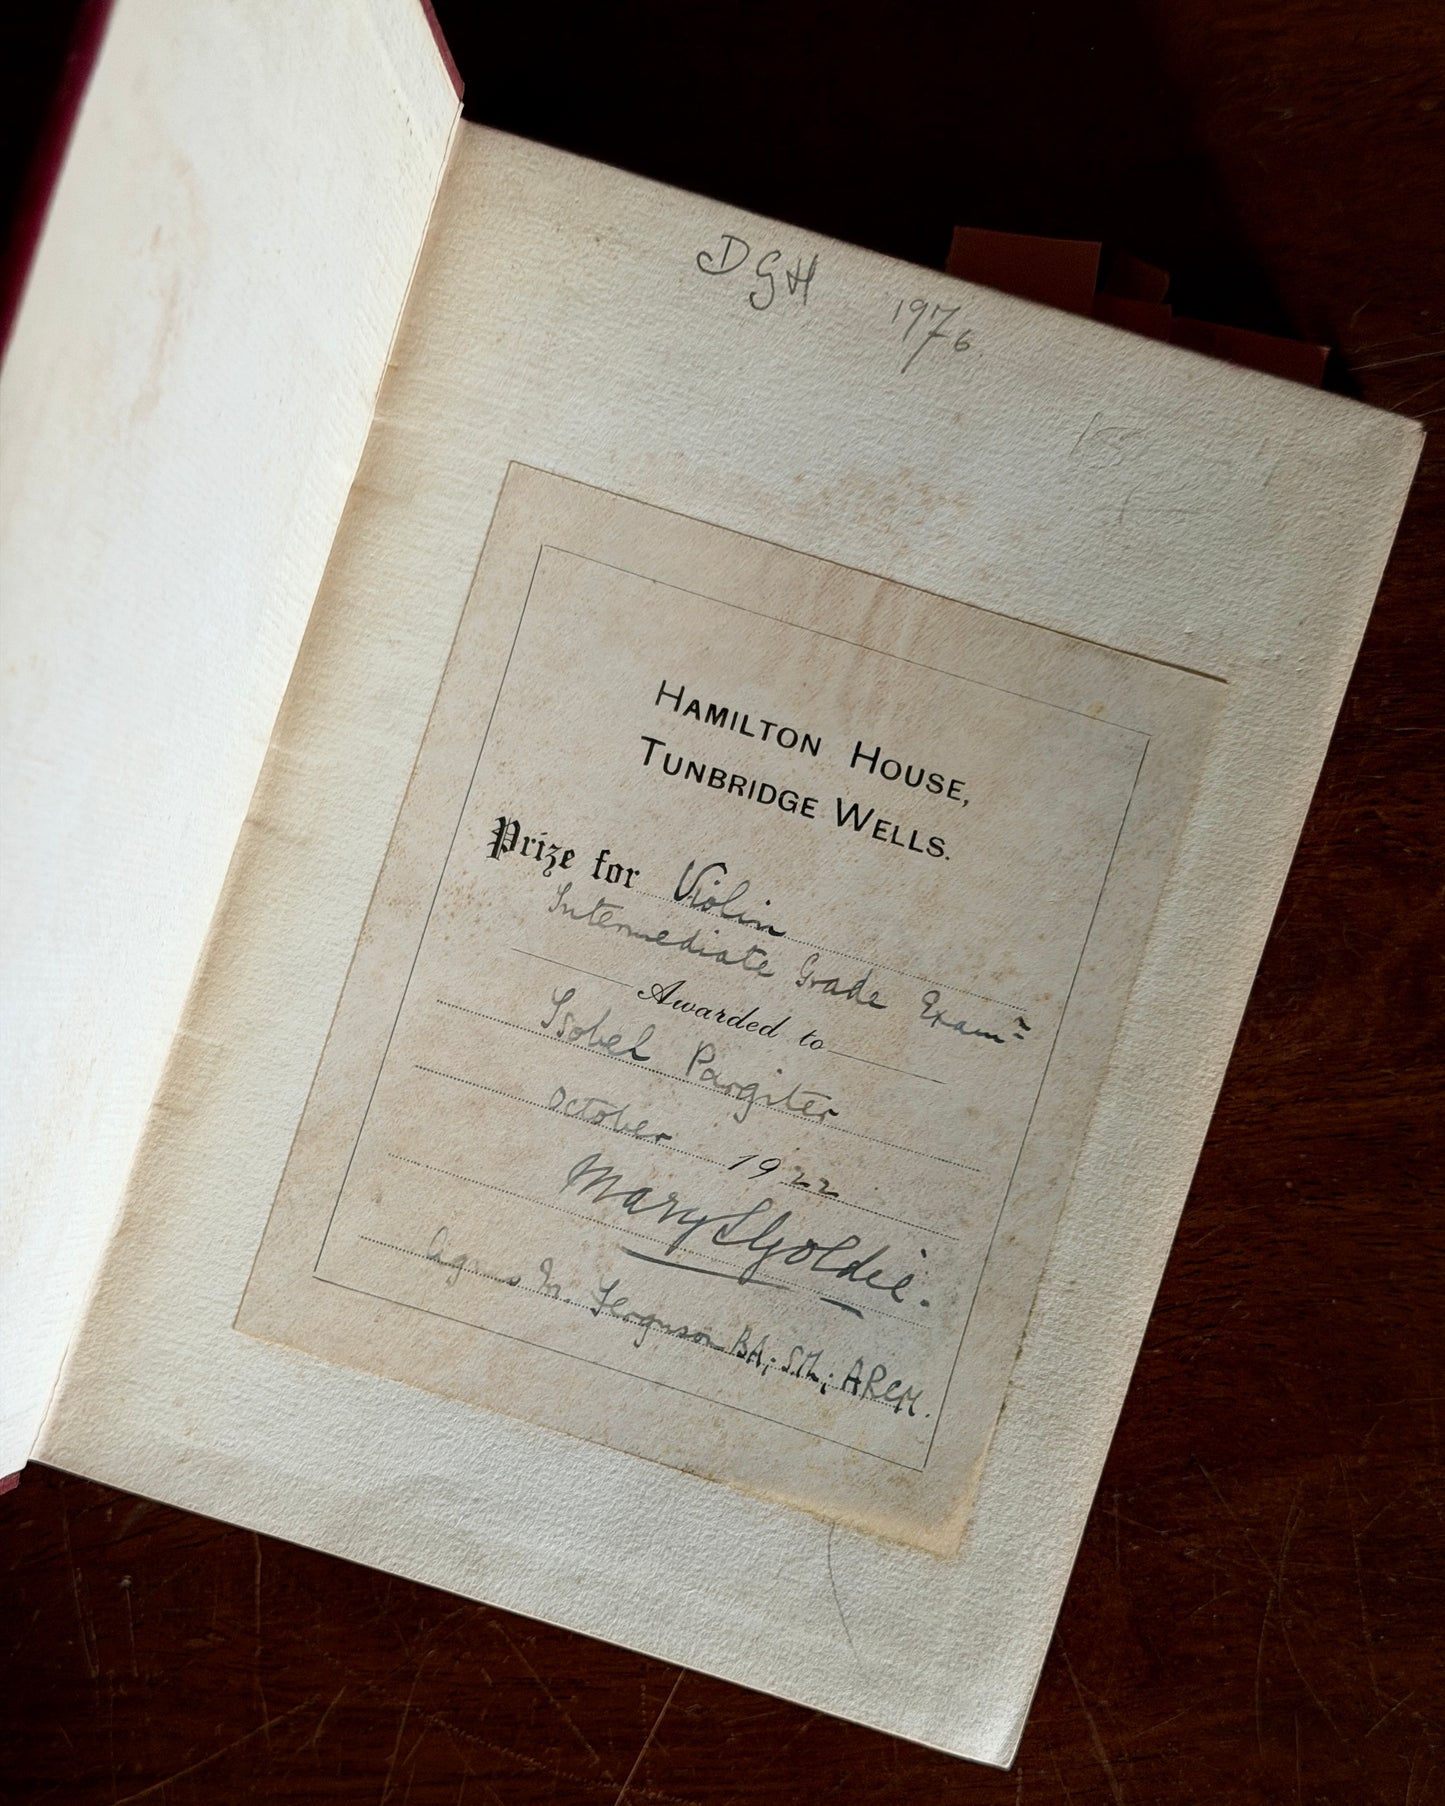 DGH 1976
HAMILTON HOUSE,
TUNBRIDGE WELLS.
Prize for Violin
Intermediate Grade Examn
Awarded to
Isobel Pargiter
October 1922
Mary S Goldie.
M. Ferguson BA; ARCM.